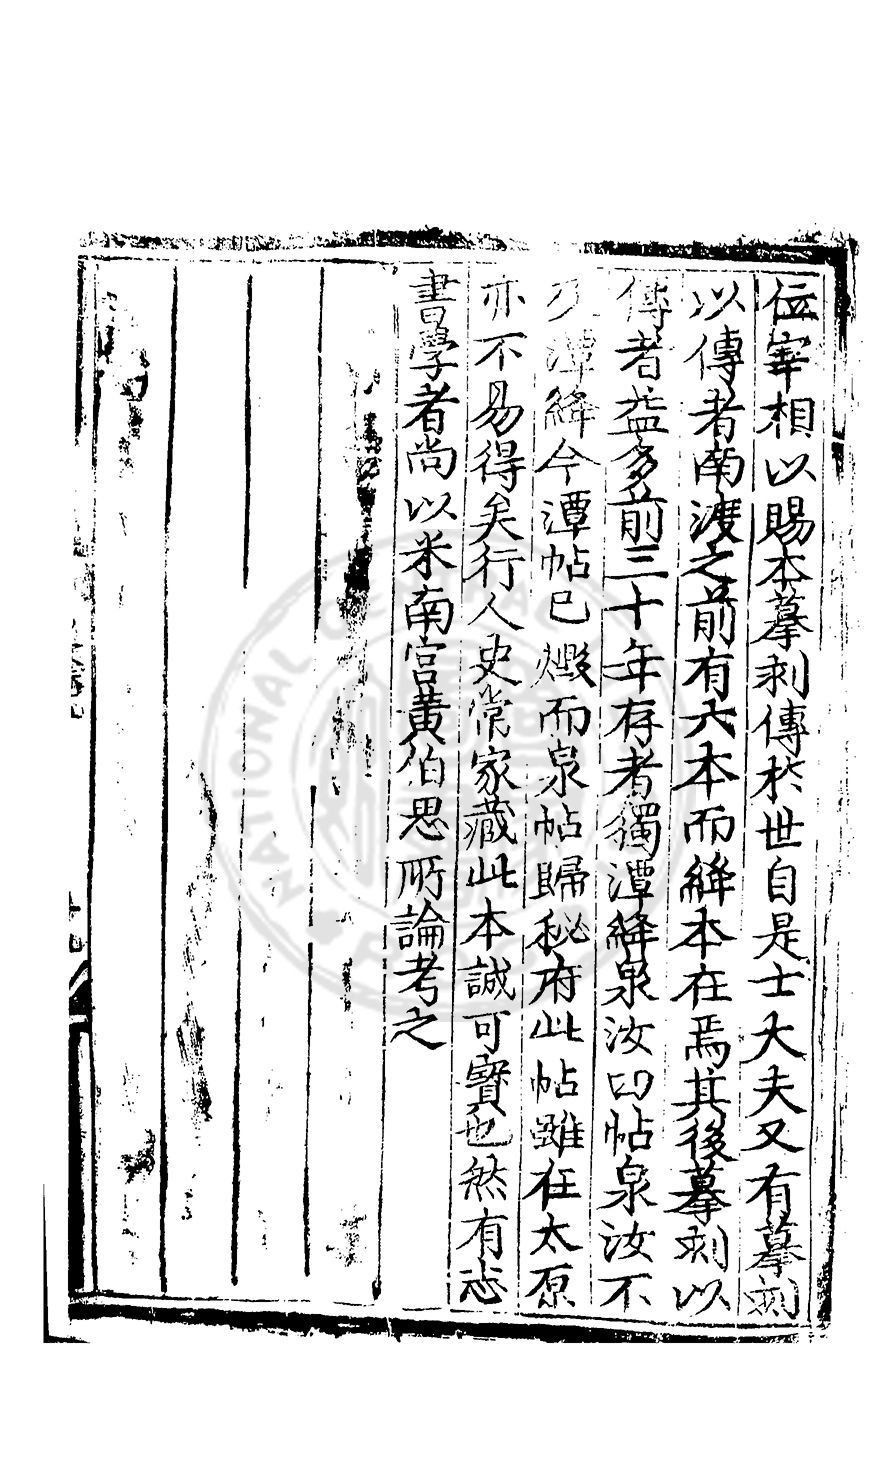 位宰相以賜本摹刻傳於世自是士大夫又有摹刻
以傳者南渡之前有六本而絳本在焉其後摹刻以
傳者益多前三十年存者獨潭絳泉汝四帖泉汝不
及潭絳今潭帖已燬而泉帖歸秘府此帖雖在太原
亦不易得矣行人史常家藏此本誠可寶也然有志
書學者尚以米南宮黃伯思所論考之
十九
NATIONAL CENTRAL